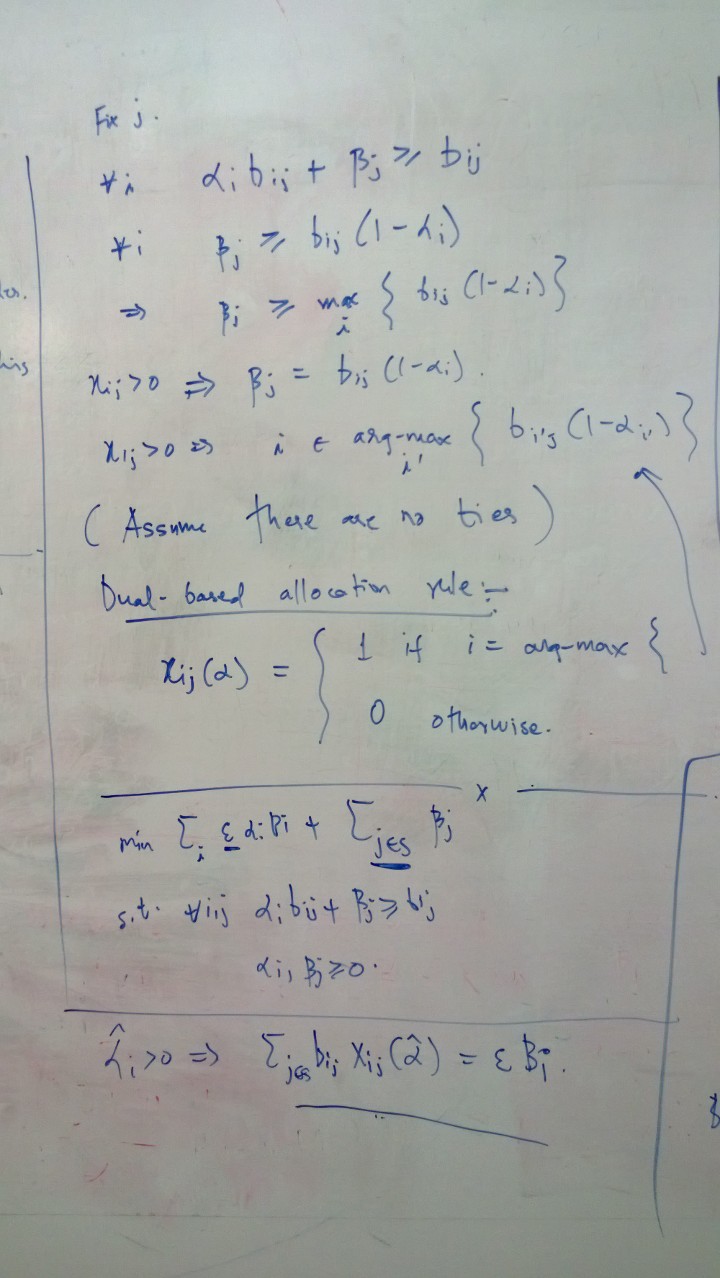 Fix j.
∀i αi bij + βj ≥ bij
∀i βj ≥ bij (1-αi)
⇒ βj ≥ max i { bij (1-αi) }
xij>0 ⇒ βj = bij (1-αi).
xij>0 ⇒ i ∈ arg-max i' { bi'j (1-αi') }
( Assume there are no ties )
Dual-based allocation rule:-
xij(α) = { 1 if i = arg-max {
0 otherwise.
x
min Σi ε αi Bi + Σj∈S βj
s.t. ∀i,j αi bij + βj ≥ bij
αi, βj ≥ 0.
α̂i>0 ⇒ Σj∈S bij xij(α̂) = ε Bi.